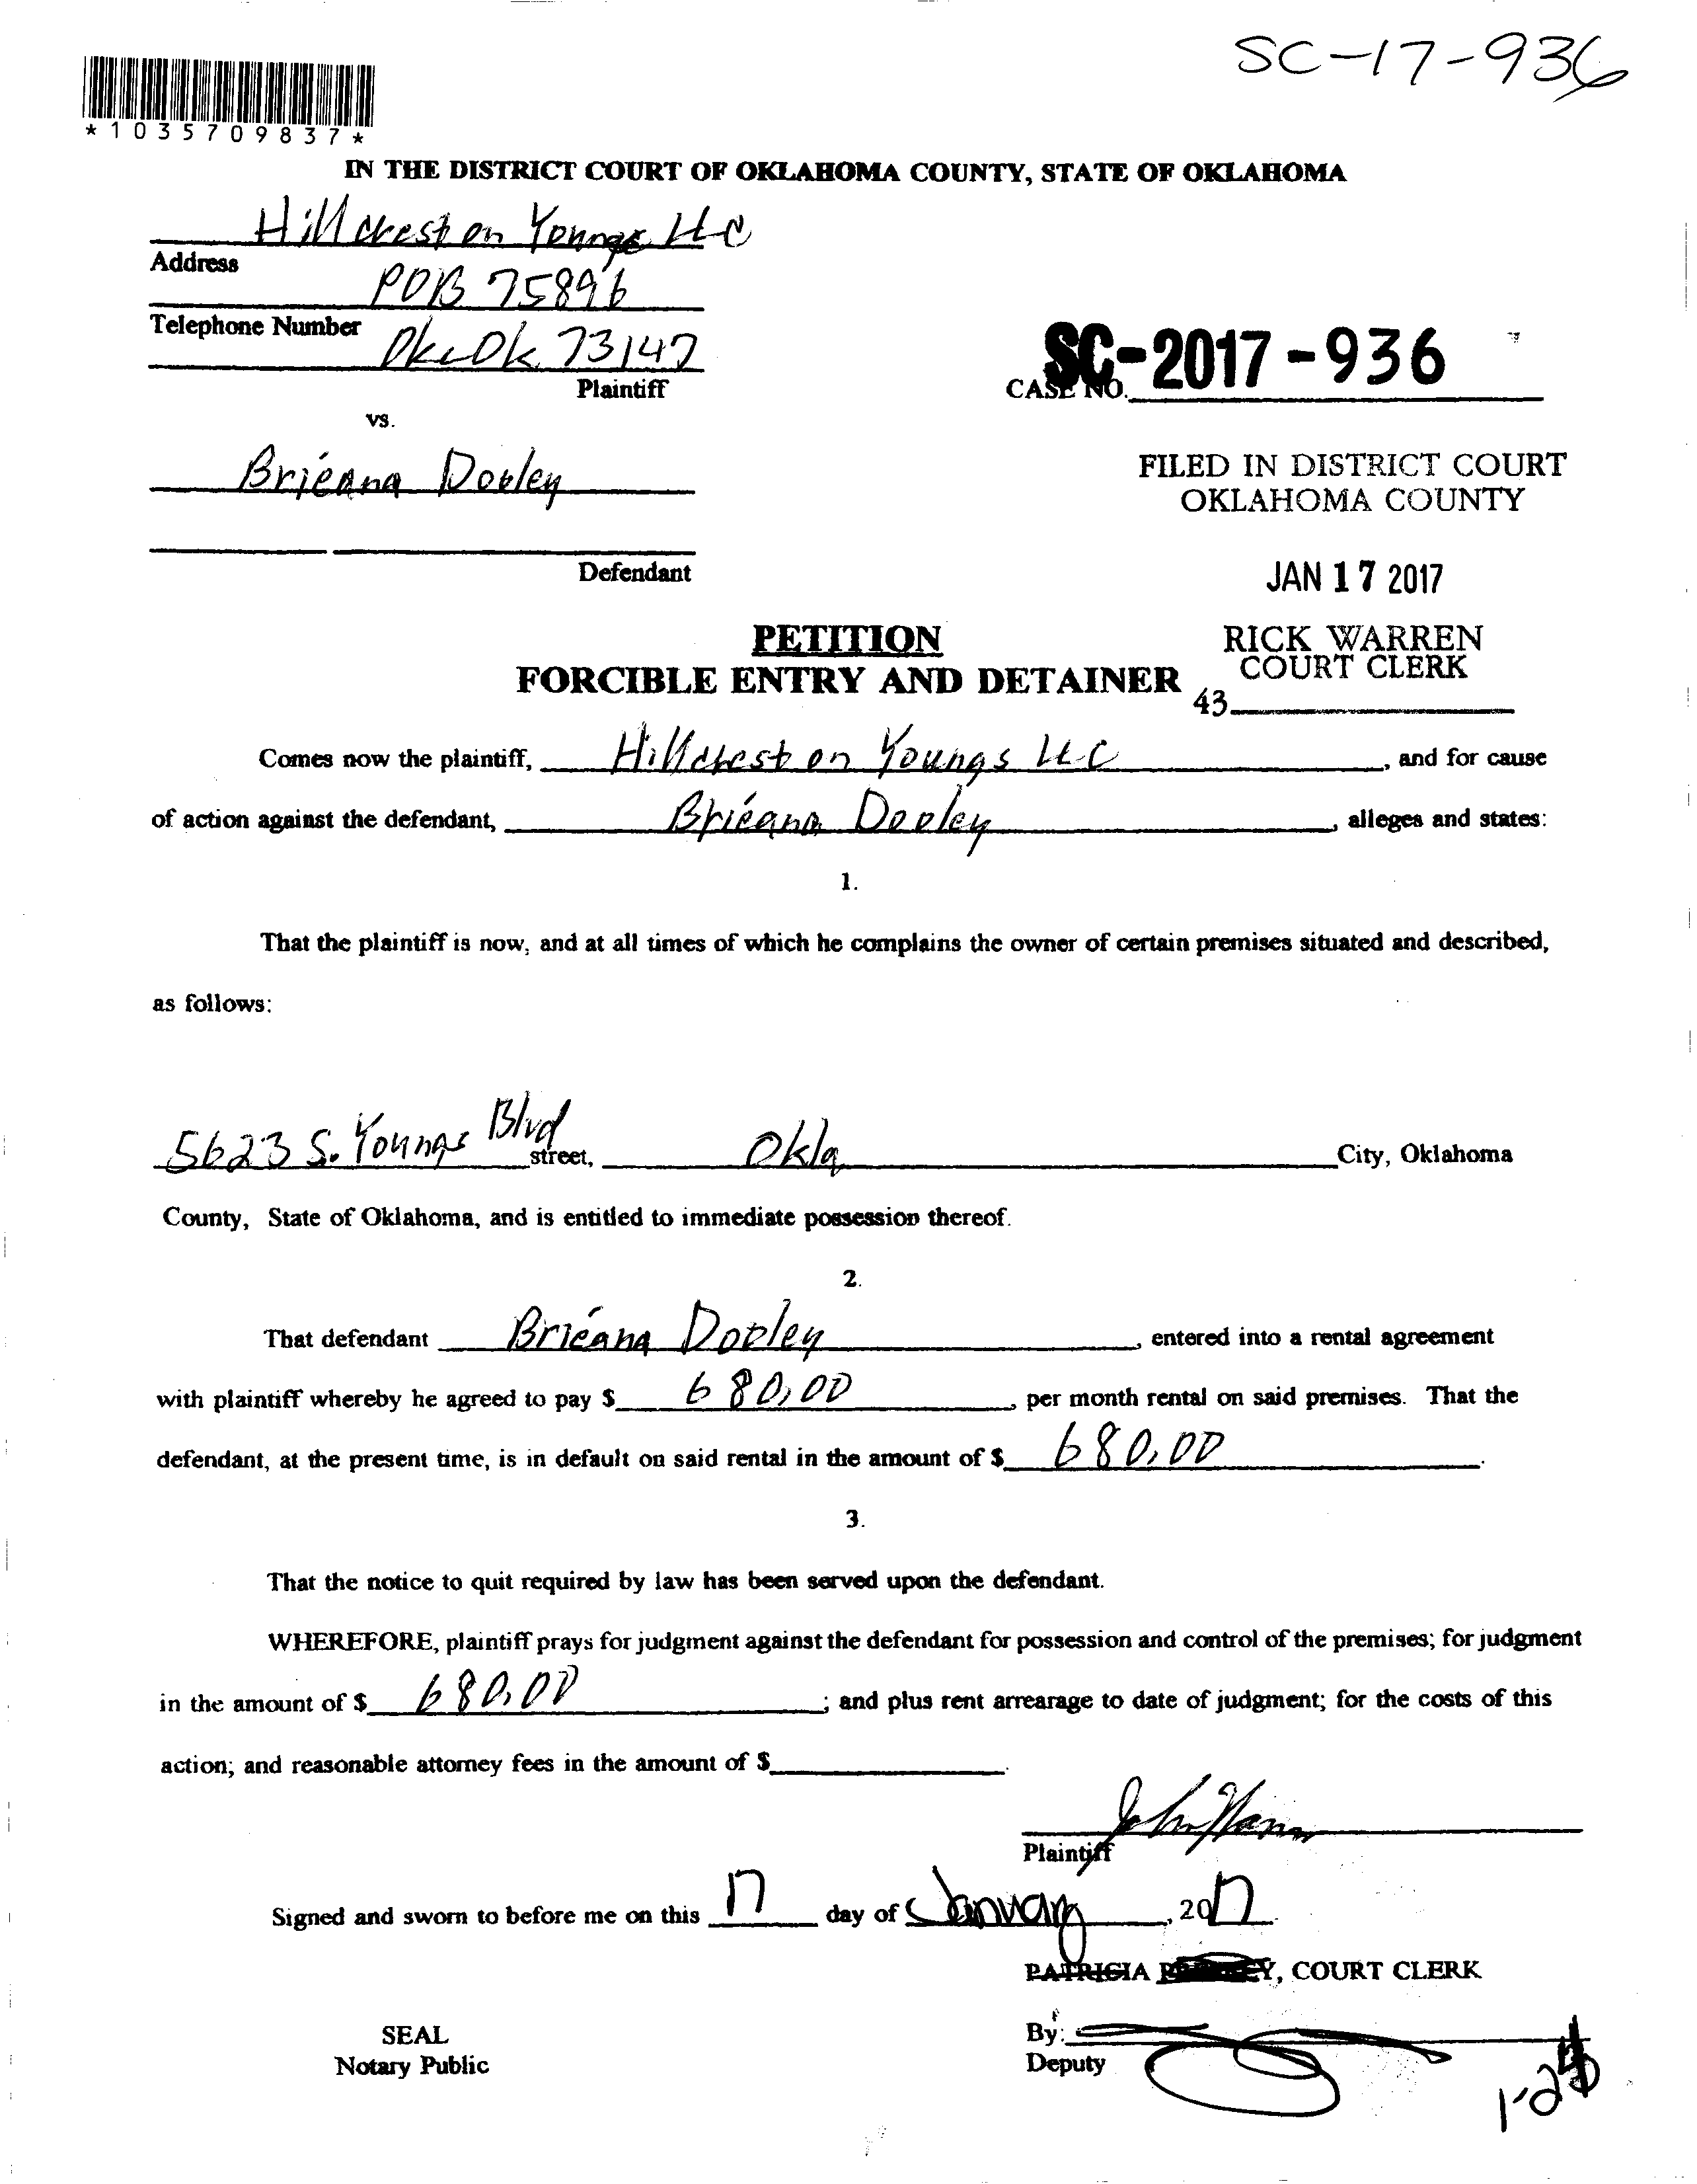 SC-17-936
*1035709837*
IN THE DISTRICT COURT OF OKLAHOMA COUNTY, STATE OF OKLAHOMA
Hillcrest on Youngs LLC
Address
POB 75896
Telephone Number
Okc Ok 73147
Plaintiff
SC-2017-936
CASE NO.
vs.
Brieana Dooley
FILED IN DISTRICT COURT
OKLAHOMA COUNTY
Defendant
JAN 17 2017
PETITION
RICK WARREN
COURT CLERK
FORCIBLE ENTRY AND DETAINER
43
Comes now the plaintiff, Hillcrest on Youngs LLC, and for cause
of action against the defendant, Brieana Dooley, alleges and states:
1.
That the plaintiff is now, and at all times of which he complains the owner of certain premises situated and described,
as follows:
5623 S. Youngs Blvd street, Okla City, Oklahoma
County, State of Oklahoma, and is entitled to immediate possession thereof.
2.
That defendant Brieana Dooley, entered into a rental agreement
with plaintiff whereby he agreed to pay $ 680.00, per month rental on said premises. That the
defendant, at the present time, is in default on said rental in the amount of $ 680.00.
3.
That the notice to quit required by law has been served upon the defendant.
WHEREFORE, plaintiff prays for judgment against the defendant for possession and control of the premises; for judgment
in the amount of $ 680.00; and plus rent arrearage to date of judgment; for the costs of this
action; and reasonable attorney fees in the amount of $
John
Plaintiff
Signed and sworn to before me on this 17 day of January, 2017.
PATRICIA, COURT CLERK
SEAL
By:
Notary Public
Deputy